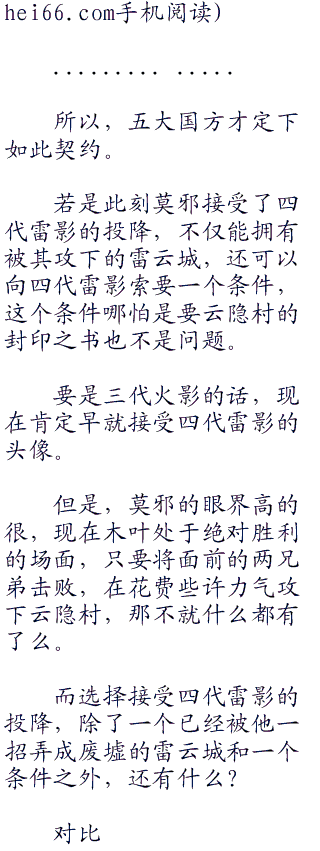 hei66.com手机阅读)
......... .....
所以，五大国方才定下
如此契约。
若是此刻莫邪接受了四
代雷影的投降，不仅能拥有
被其攻下的雷云城，还可以
向四代雷影索要一个条件，
这个条件哪怕是要云隐村的
封印之书也不是问题。
要是三代火影的话，现
在肯定早就接受四代雷影的
头像。
但是，莫邪的眼界高的
很，现在木叶处于绝对胜利
的场面，只要将面前的两兄
弟击败，在花费些许力气攻
下云隐村，那不就什么都有
了么。
而选择接受四代雷影的
投降，除了一个已经被他一
招弄成废墟的雷云城和一个
条件之外，还有什么？
对比